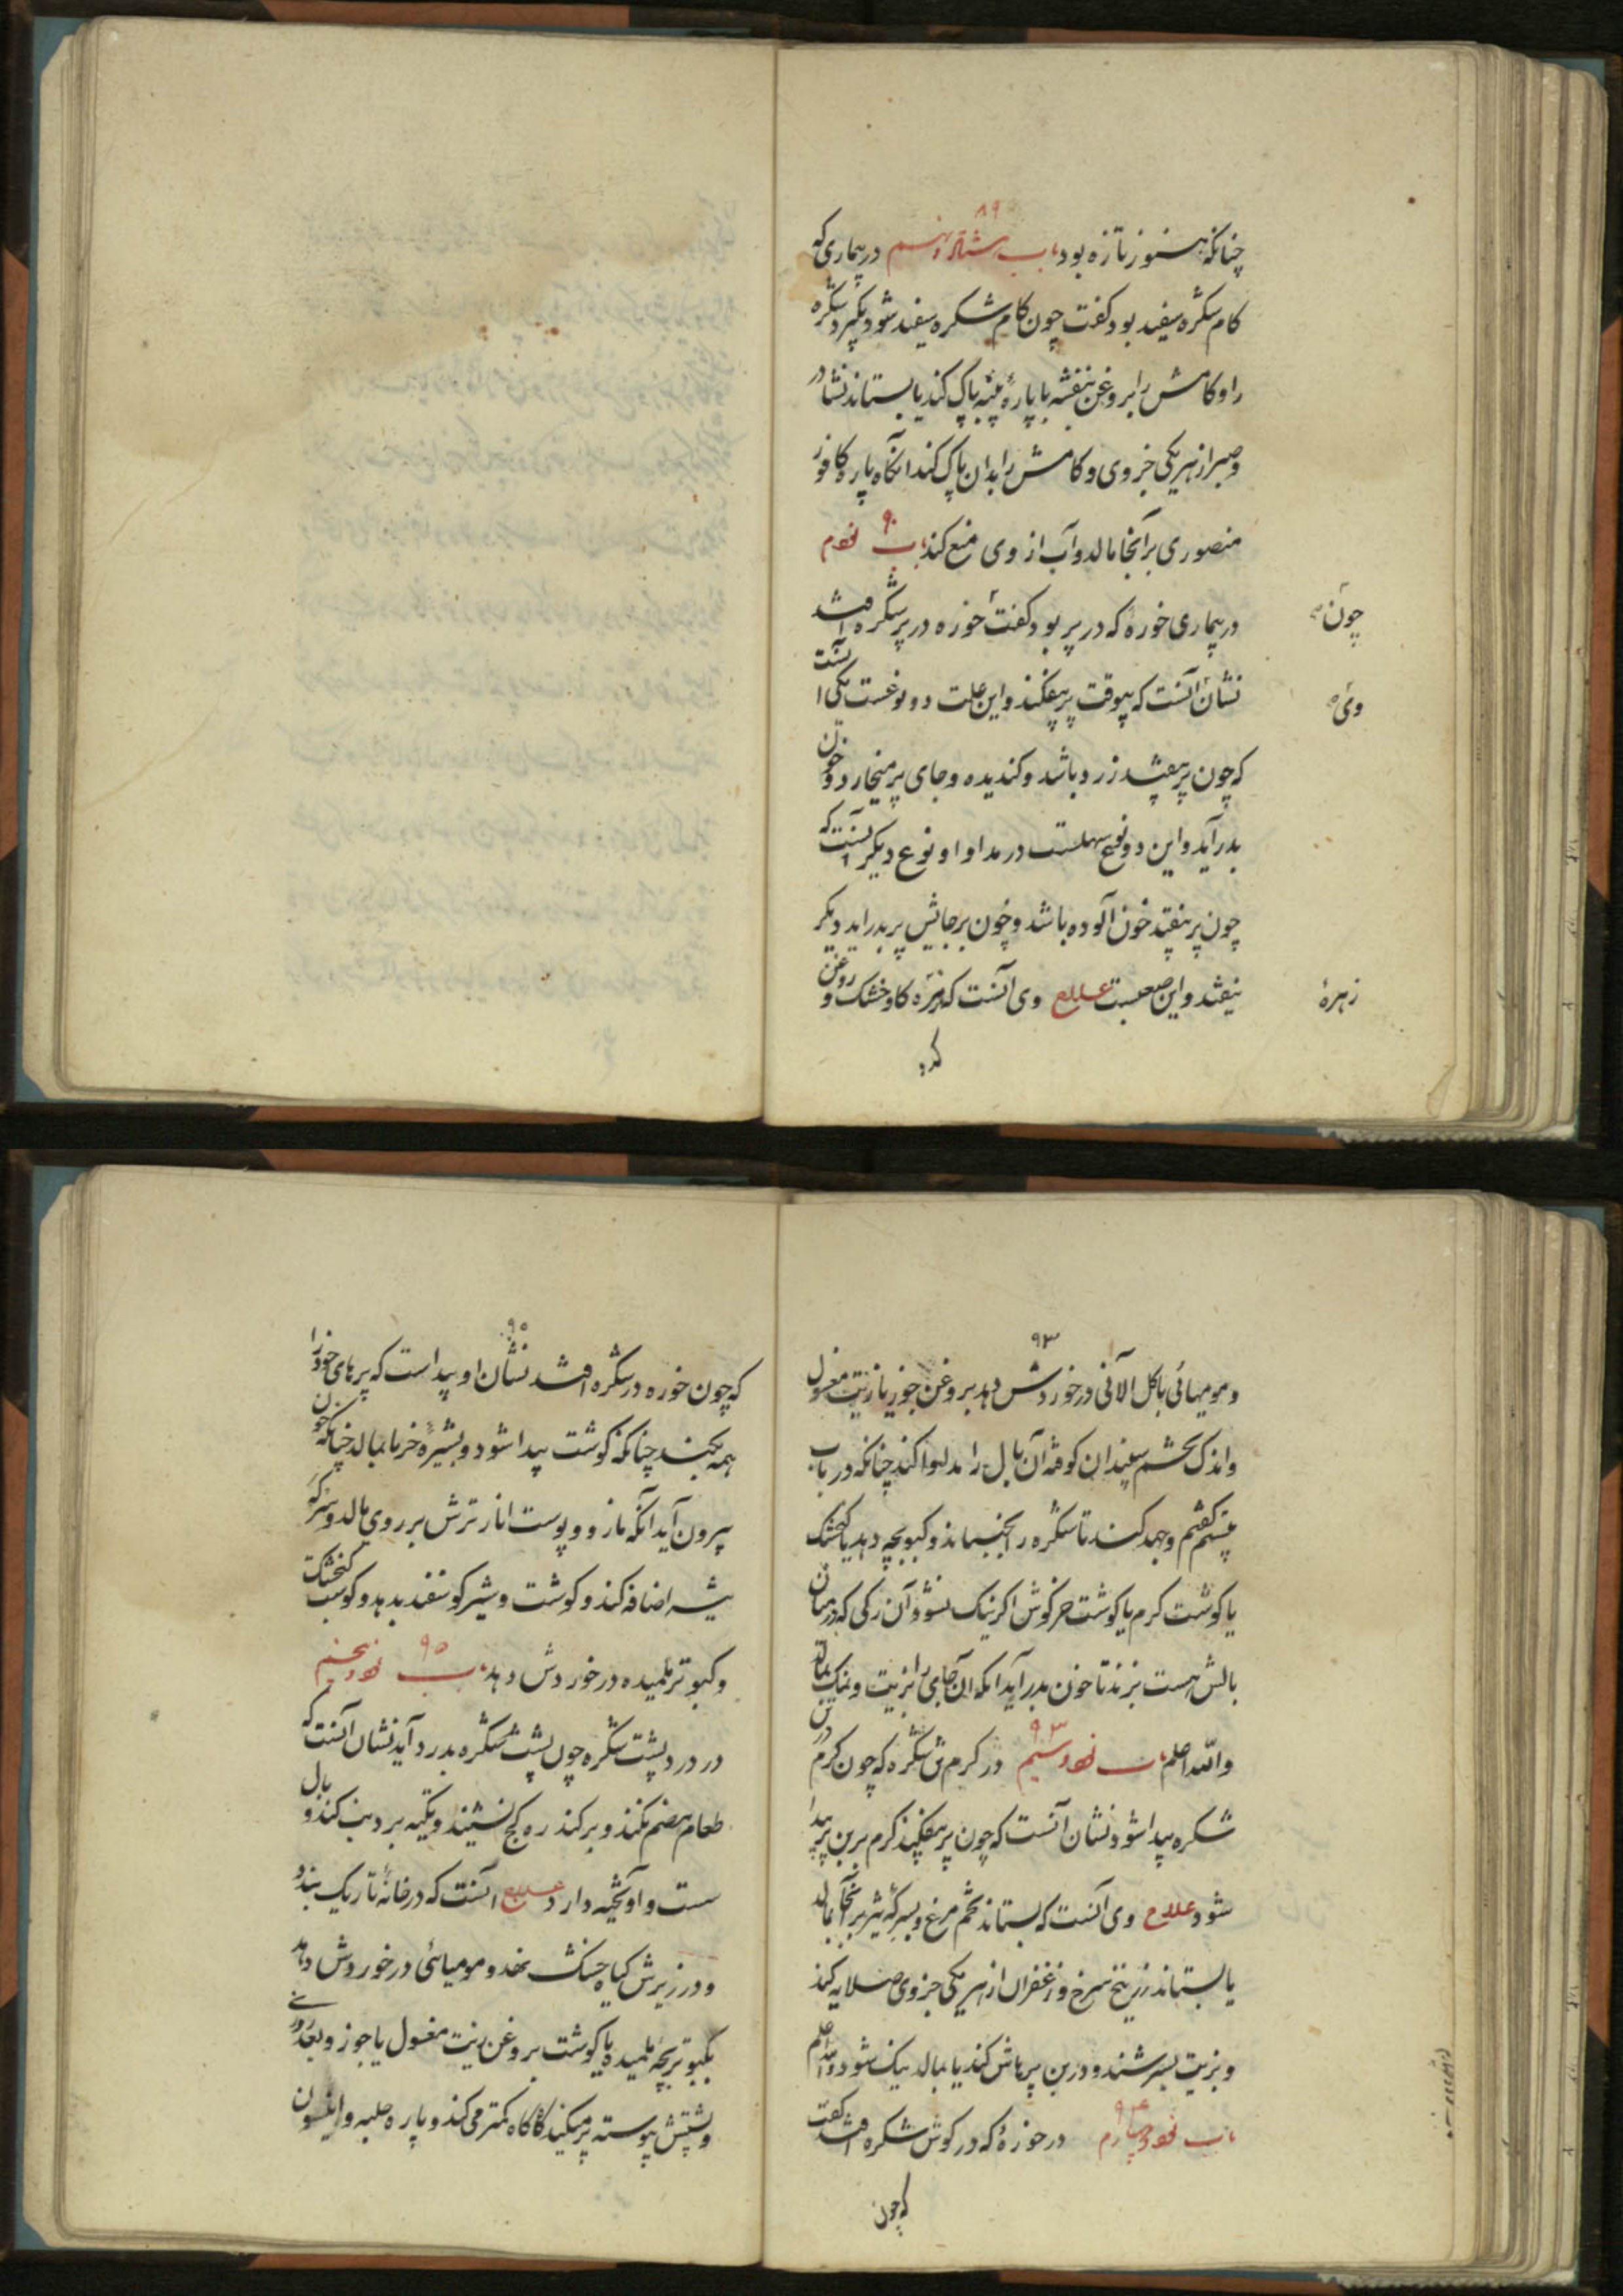 ۸۹
چنانکه هنوز تازه بود باب هشتاد و نهم در بیماری که
کام شکره سفید بود گفت چون کام شکره سفید شود بگیرد شکره
را و کامش را بروغن بنفشه با پارهٔ پنبه پاک کند یا بستاند نشادر
و صبر از هر یکی جزوی و کامش را بدان پاک کند آنگاه پاره کافور
منصوری بر آنجا مالد و آب از وی منع کند باب ۹۰ نودم
در بیماری خوره که در پر بود گفت خوره در پر شکره افتد
چون
نشان آنست که بیوقت پر بیفکند و این علت دو نوعست یکی آنست
وی
که چون پر بیفتد زرد باشد و کندیده و جای پر میخارد و خون
بدر آید و این دو نوع سهلست در مداوا و نوع دیگر آنست که
چون پر بیفتد خون آلوده باشد و خون بر جایش پر بدر آید دیگر
نیفتد و این صعبست علاج وی آنست که زهره گاو خشک و روغن
زهرهٔ
کرد
۹۳
و مومیائی با گل الانی در خوردش دهد بروغن جوز یا زیت مغسول
و اندک تخشم سفیدان کوفته آن بال را مداوا کند چنانکه در باب
بیستم گفتیم و جهد کند تا شکره را بجنباند و کبوبچه دهد یا گنجشک
یا گوشت گرم یا گوشت خرگوش اگر نیک نشود آن رگی که در میان
بالش هست بزند تا خون بدر آید آنگه آن جای را بزیت و نمک بمالد
والله اعلم باب ۹۳ نود و سیم در کرم شکره که چون کرم در
شکره پیدا شود نشان آنست که چون پر بیفکند کرم برین پر پیدا
شود علاج وی آنست که بستاند تخم مرغ و بسرکه شیر بر آنجا مالد
یا بستاند زرنیخ سرخ و زعفران از هر یکی جزوی صلایه کند
و بزیت بسرشند و در بن پرهاش کند یا بمالد نیک شود والله اعلم
باب ۹۴ نود و چهارم در خورهٔ که در گوش شکره افتد گفت
که چون
۹۵
که چون خوره در شکره افتد نشان او پیداست که پرهای خود را
همه بکند چنانکه گوشت پیدا شود و بشیرهٔ خرما بمالد چنانکه خون
بیرون آید آنگه مازو و پوست انار ترش بر روی مالد و سرکه
بیشه اضافه کند و گوشت و شیر گوسفند بدهد و گوشت گنجشک
و کبوتر تلمیده در خوردش دهد باب ۹۵ نود و پنجم
در درد پشت شکره چون پشت شکره بدرد آید نشان آنست که
طعام هضم نکند و بر کندره کج نشیند و تکیه بر دنب کند و بال
سست و آویخته دارد علاج آنست که در خانهٔ تاریک بندد
و در زیرش گیاه خشک نهد و مومیائی در خوردش دهد
بکبوتر بچه تلمیده یا گوشت بروغن زیت مغسول یا جوز و بعد
و پشتش پیوسته پر میکند تا گاه کمتر می‌کند و پاره حلبه و انیسون